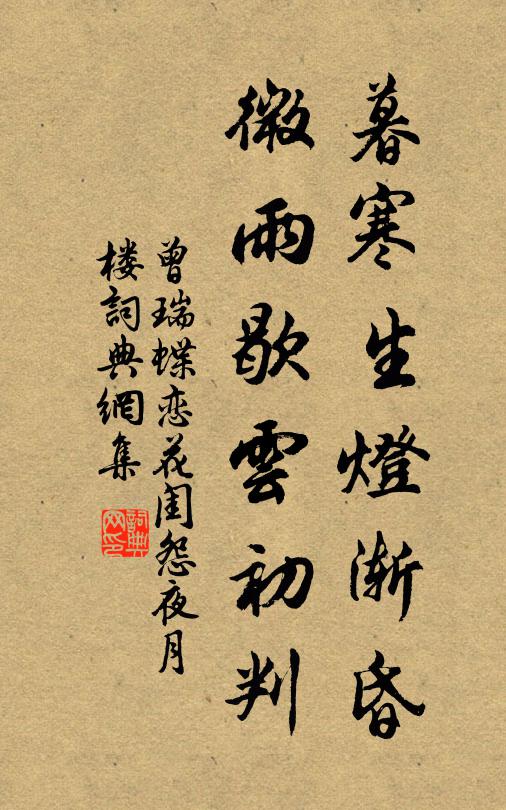 暮寒生燈渐昏
微雨歇雲初判
曾瑞蝶恋花闺怨夜月
楼詞典網集
詞典网印